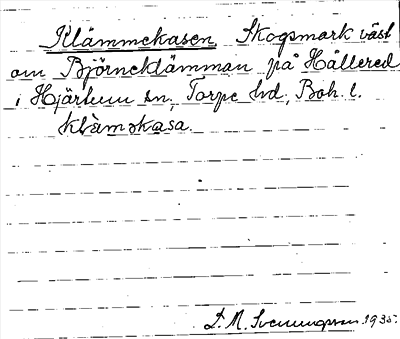 Klämmekasen, Skogsmark väst
om Björneklämman på Hållered
i Hjärtum sn, Torpe hd, Boh. l.
klàməkasa.
S. M. Svenungsson. 1935.